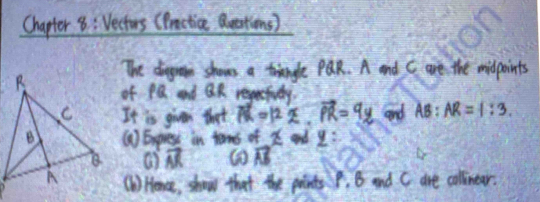 Chapter 8 : Vectors (Practice Questions)
The diagram shows a triangle PQR. A and C are the midpoints
of PQ and QR respectively.
It is given that PQ = 12 x, PR = 9y and AB : AR = 1 : 3.
(a) Express in terms of x and y :
(i) AR (ii) AB
(b) Hence, show that the points P, B and C are collinear.
R
C
B
Q
P
A
MathsTuition